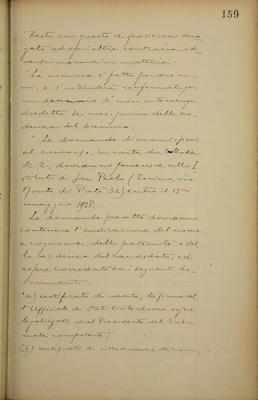 159
"Resta con queste disposizioni dero
gata ad ogni altra contraria o di
versa norma in materia.
"La nomina è fatta per due an
ni, e s'intenderà confermata per
un se non intervenga
disdetta sei mesi prima della sca
denza del biennio.
"Le domande d'ammissione
al concorso, in carta da bollo da
L. 2-, dovranno pervenire allo I
stituto di San Paolo (Torino, via
Monte di Pietà 32) entro il 15
maggio 1928.
Le domande predette dovranno
contenere l'indicazione del nome
e cognome, della paternità e del
la residenza del candidato, ed
essere corredate dai seguenti do
cumenti:
"a) certificato di nascita, la firma del
l'Ufficiale di Stato Civile dovrà essere
legalizzata dal Presidente del Tribu
nale competente;
b) certificato di cittadinanza